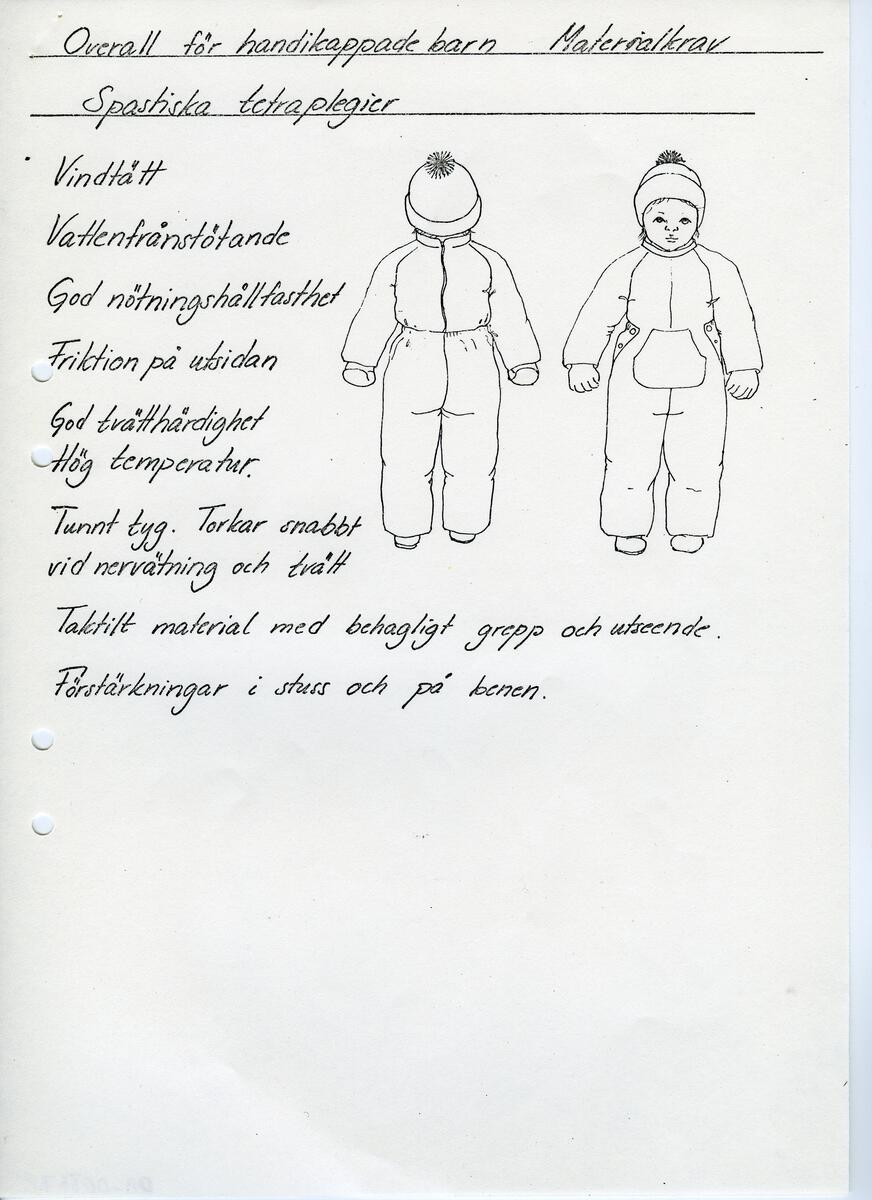 Overall för handikappade barn Materialkrav
Spastiska tetraplegier
Vindtätt
Vattenfrånstötande
God nötningshållfasthet
Friktion på utsidan
God tvätthärdighet
Hög temperatur.
Tunnt tyg. Torkar snabbt
vid nervätning och tvätt
Taktilt material med behagligt grepp och utseende.
Förstärkningar i stuss och på benen.